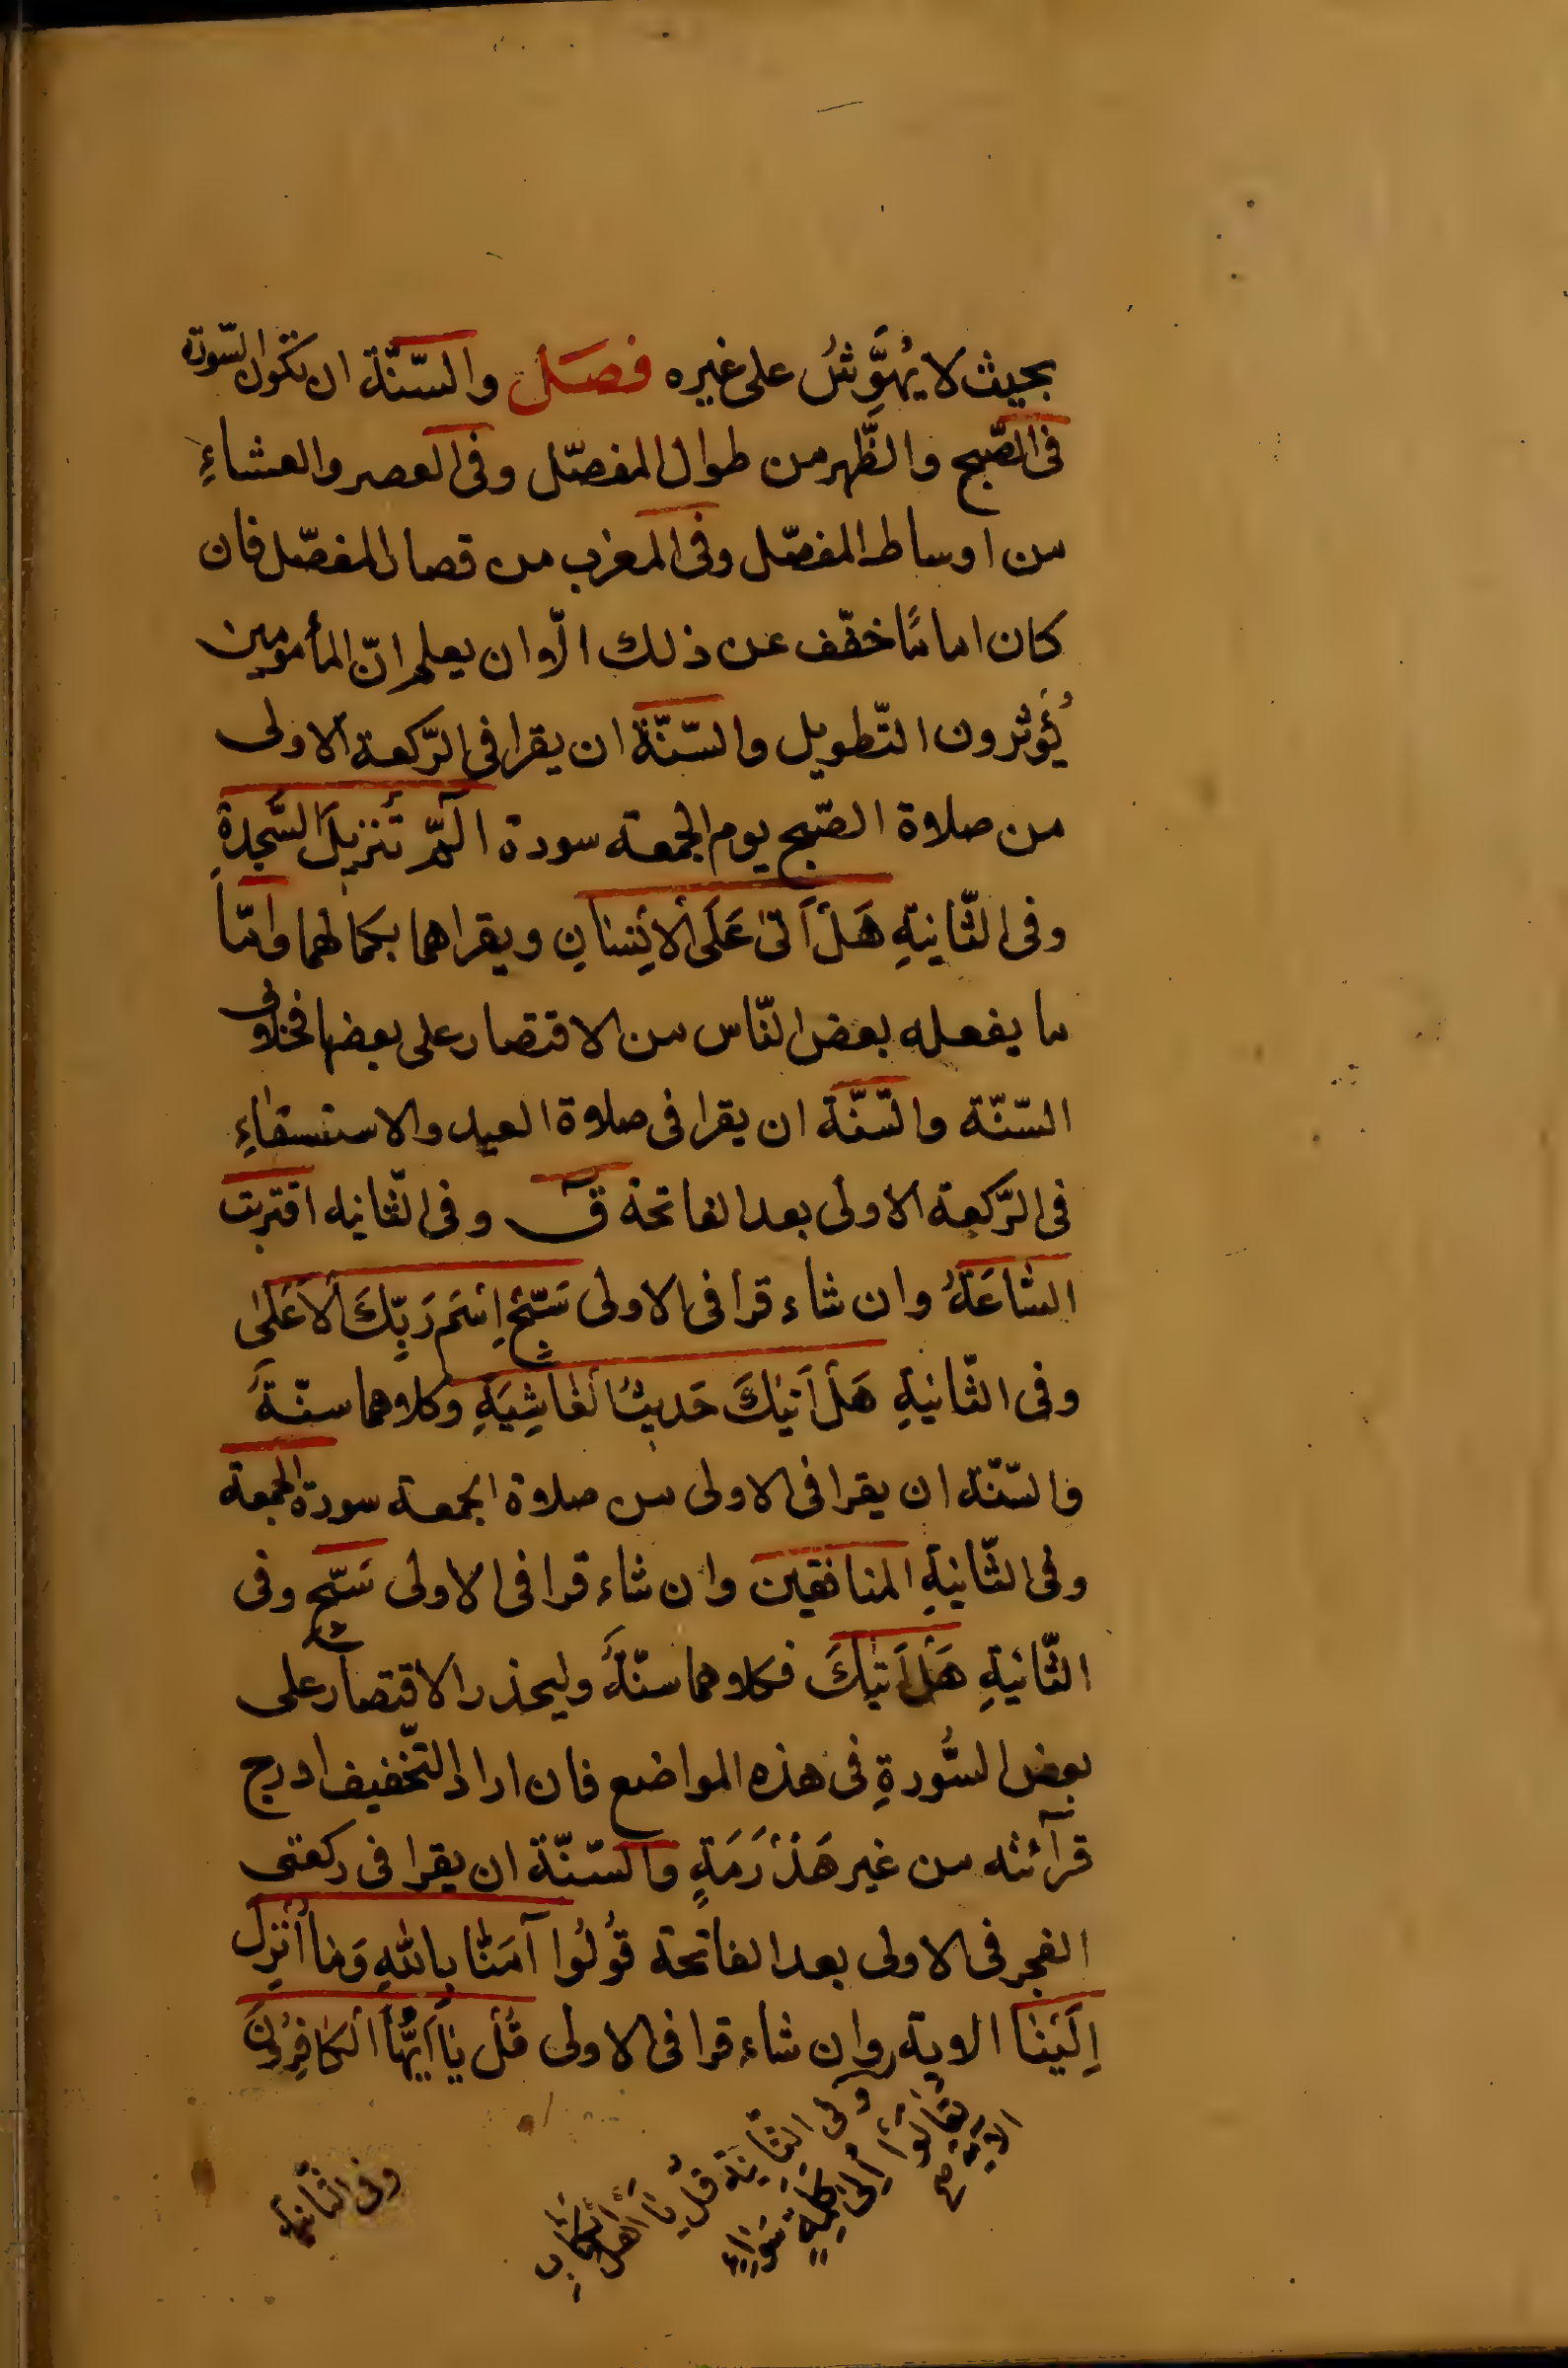 بحيث لا يُهَوِّشُ على غيره فصَل والسّنّة ان تكون السّورة
فى الصّبح والظّهر من طوال المفصّل وفى العصر والعشاءِ
من اوساط المفصّل وفى المغرب من قصار المفصّل فان
كان امامًا خفّف عن ذلك الّا ان يعلم انّ المأمومين
يُؤثرون التّطويل والسّنّة ان يقرا فى الرّكعة الاولى
من صلاة الصّبح يوم الجمعة سورة الٓمّٓ تَنْزِيلُ السَّجدةِ
وفى الثّانيةِ هَلْ اَتىٰ عَلَى الْاِنْسٰانِ ويقراهما بكمالهما وامّا
ما يفعله بعض النّاس من الاقتصار على بعضها فخلاف
السّنّة والسّنّة ان يقرا فى صلاة العيد والاستسقاءِ
فى الرّكعة الاولى بعد الفاتحة قٓ وفى الثّانيه اقتربت
السّٰاعَةُ وان شاء قرأ فى الاولى سَبّحِ اِسْمَ رَبِّكَ الْاَعْلىٰ
وفى الثّانيةِ هَلْ اَتٰيكَ حَديثُ الْغٰاشِيَةِ وكلاهما سنّةٌ
والسّنّة ان يقرا فى الاولى من صلاة الجمعة سورة الجمعة
وفى الثّانيةِ المنافقين وان شاء قرا فى الاولى سَبّح وفى
الثّانيةِ هَلْ اَتٰيكَ فكلاهما سنّةٌ وليحذر الاقتصار على
بعض السُّورةِ فى هذه المواضع فان اراد التّخفيف ادرج
قرآئته من غير هَذْرَمَةٍ والسّنّة ان يقرا فى ركعتى
الفجر فى الاولى بعد الفاتحة قُولُوا آمَنّٰا بِاللّٰهِ وَمٰا اُنْزِلَ
اِلَيْنٰا الاية وان شاء قرا فى الاولى قُلْ يٰا اَيُّهَا الْكٰافِرُونَ
وفى الثّانيَة قُل يٰا اَهْلَ الْكِتٰابِ
تَعٰالَوْا اِلى كَلِمَةٍ سَوٰاءٍ
الاية صح
وفى الثّانية